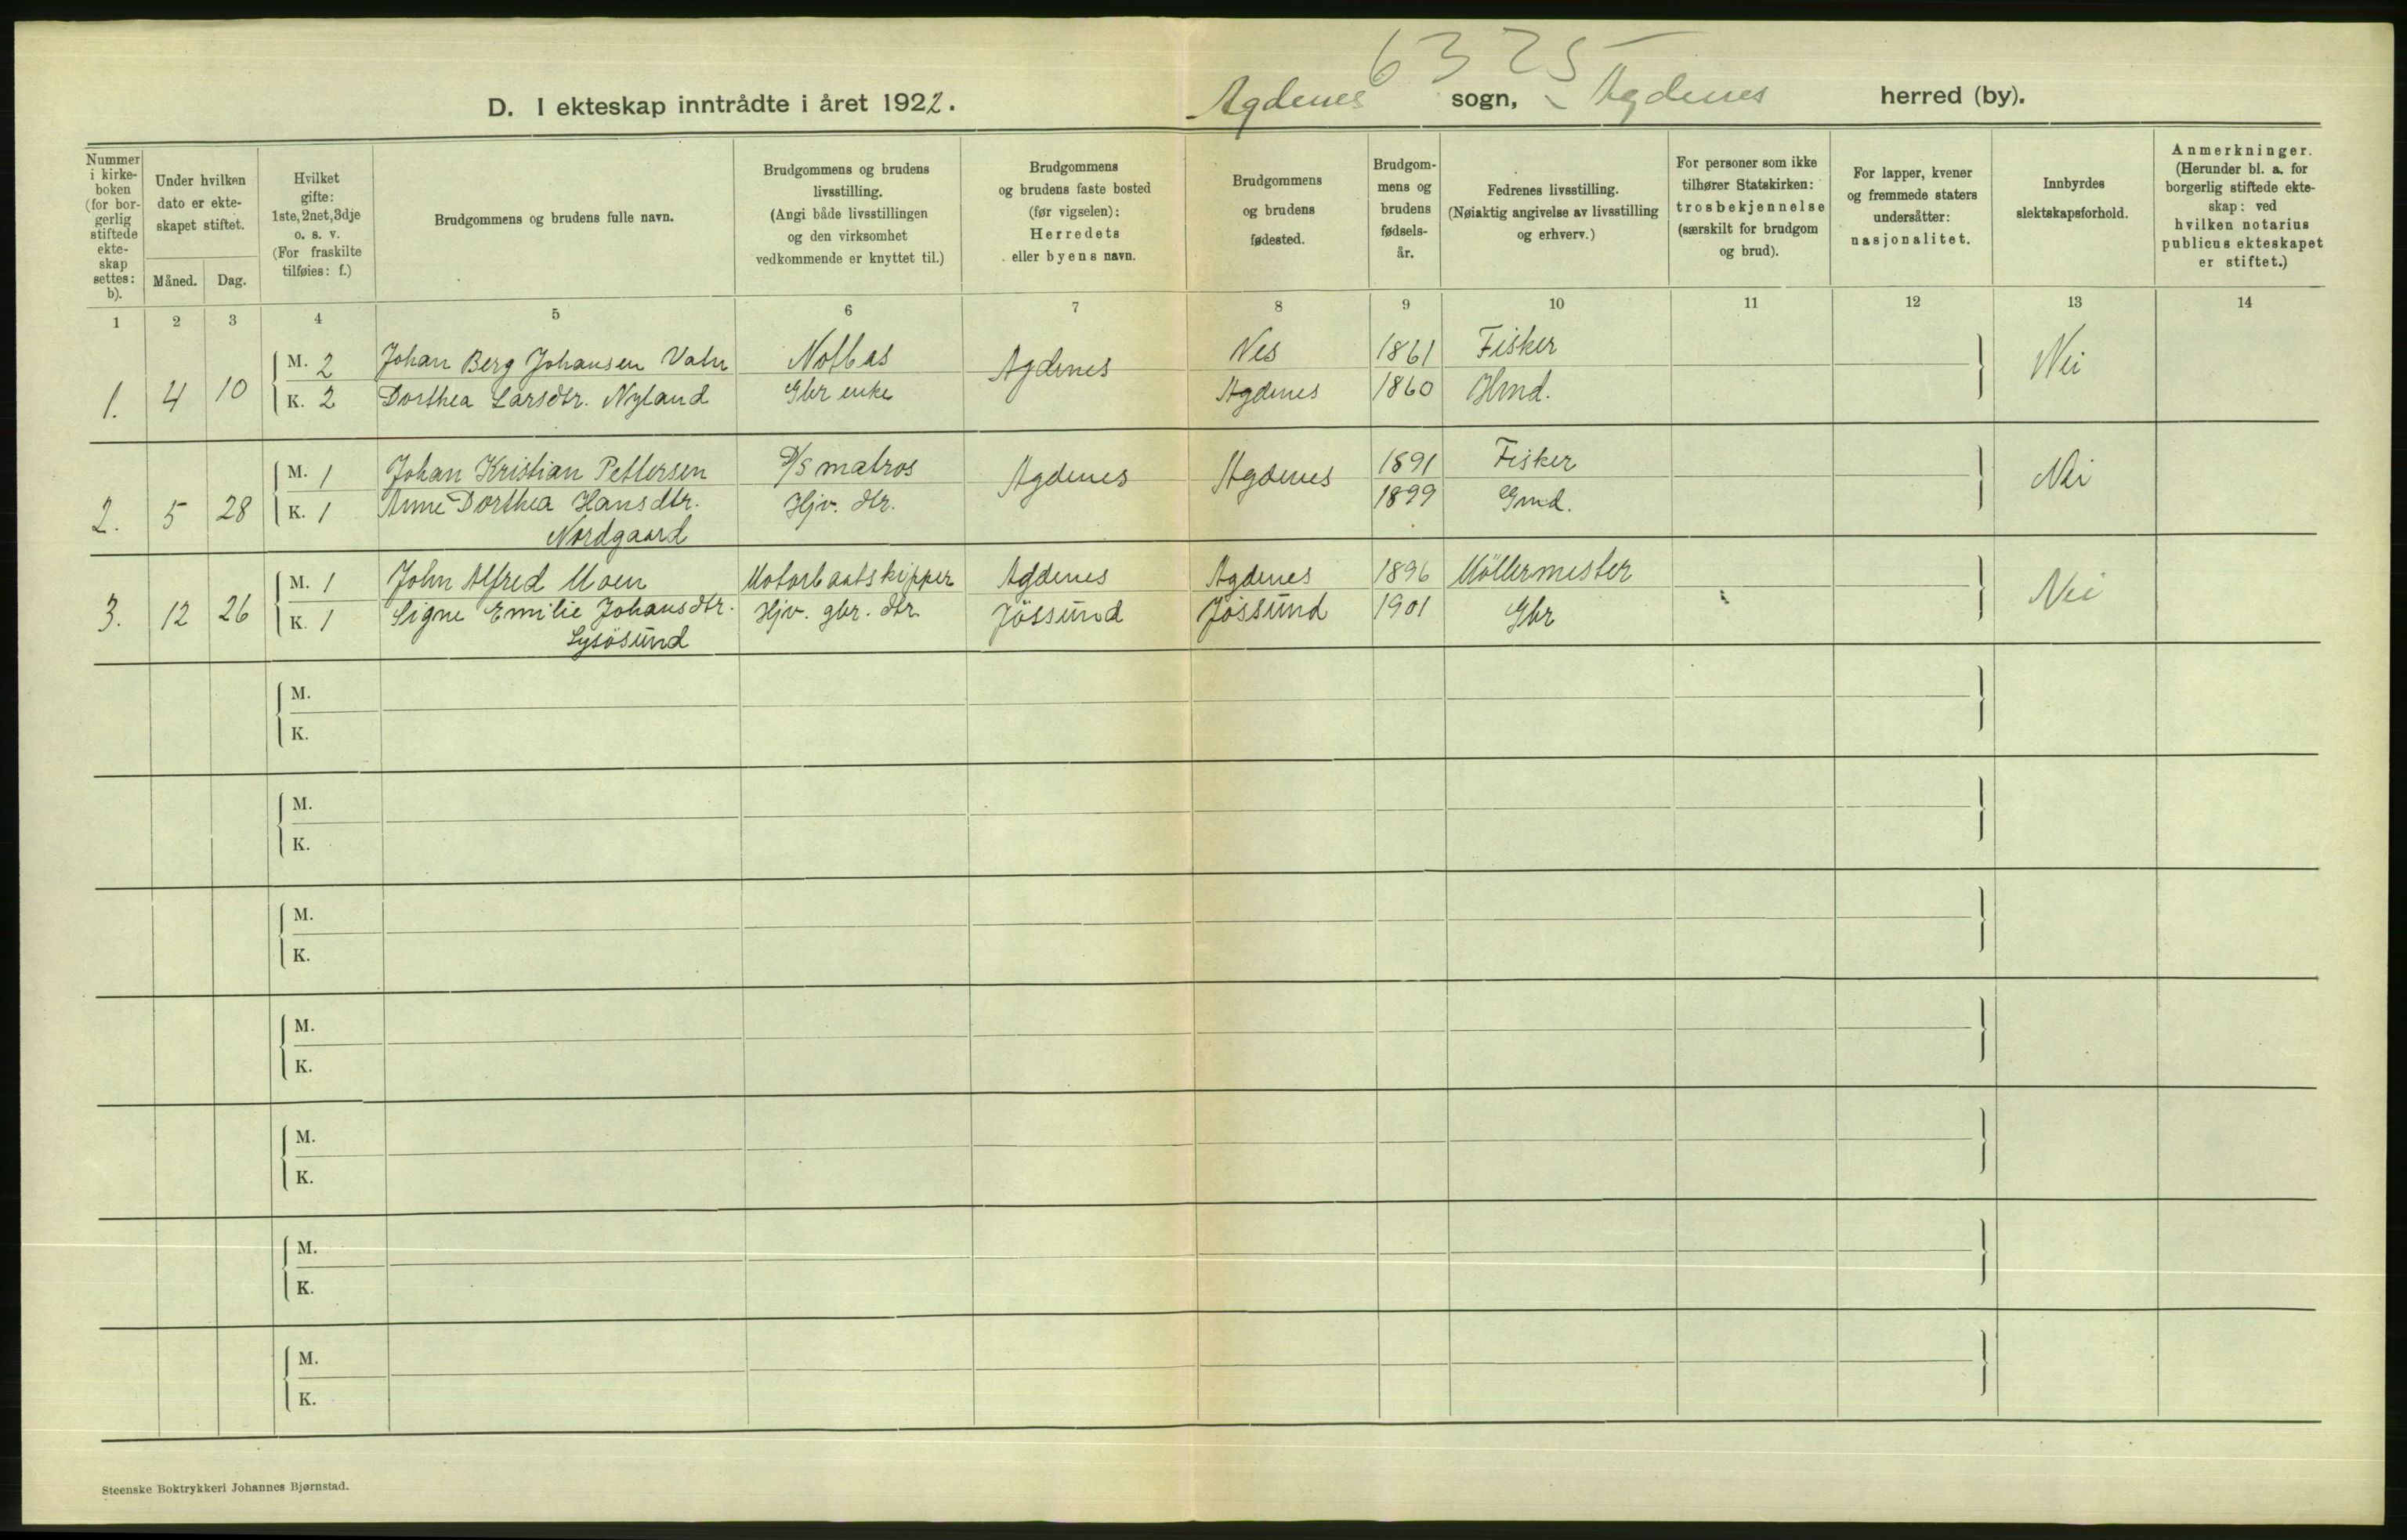 6325
D. I ekteskap inntrådte i året 1922. Agdenes sogn, Agdenes herred (by).
Nummer i kirke-boken (for bor-gerlig stiftede ekte-skap settes: b).
Under hvilken dato er ekte-skapet stiftet.
Måned. Dag.
Hvilket gifte: 1ste, 2net, 3dje o. s. v. (For fraskilte tilføies: f.)
Brudgommens og brudens fulle navn.
Brudgommens og brudens livsstilling. (Angi både livsstillingen og den virksomhet vedkommende er knyttet til.)
Brudgommens og brudens faste bosted (før vigselen): Herredets eller byens navn.
Brudgommens og brudens fødested.
Brudgom-mens og brudens fødsels-år.
Fedrenes livsstilling. (Nøiaktig angivelse av livsstilling og erhverv.)
For personer som ikke tilhører Statskirken: trosbekjennelse (særskilt for brudgom og brud).
For lapper, kvener og fremmede staters undersåtter: nasjonalitet.
Innbyrdes slektskapsforhold.
Anmerkninger. (Herunder bl. a. for borgerlig stiftede ekte-skap: ved hvilken notarius publicus ekteskapet er stiftet.)
1 2 3 4 5 6 7 8 9 10 11 12 13 14
M. 2 Johan Berg Johansen Vatn Notbas Agdenes Nes 1861 Fisker Nei
1. 4 10 K. 2 Dorthea Larsdtr. Nyland Gbr enke Agdenes 1860 Hmd.
M. 1 Johan Kristian Pettersen D/S matros Agdenes Agdenes 1891 Fisker Nei
2. 5 28 K. 1 Anne Dorthea Hansdtr. Hjv. dtr. 1899 Gmd.
Nordgaard
M. 1 John Alfred Moen Motorbaatskipper Agdenes Agdenes 1896 Möllermester Nei
3. 12 26 K. 1 Signe Emilie Johansdtr. Hjv. gbr. dtr. Jössund Jössund 1901 Gbr
Lysösund
M.
K.
M.
K.
M.
K.
M.
K.
M.
K.
M.
K.
M.
K.
Steenske Boktrykkeri Johannes Bjørnstad.